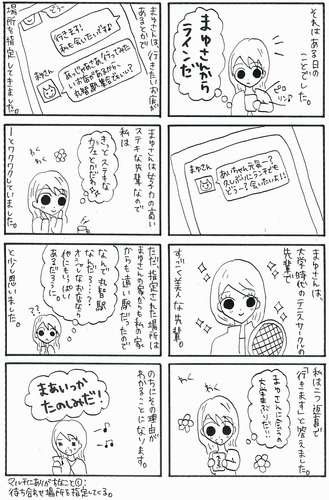 それはある日の
ことでした。
まゆさんから
ラインだ
まゆさん
あいちゃん元気〜?
久しぶりにランチでも
どう〜?会いたいよ!!
まゆさんは、
大学時代のテニスサークルの
先輩で
すっごく美人な先輩。
私は二つ返事で
「行きます」と答えました。
まゆさんに会うの
大学生ぶりだ!!
わく
わく
まゆさんは、行きたいお店が
あるので
場所を指定してきました。
行きます!
私も会いたいですよ
まゆさん
お店があるから
まゆさんは女子力の高い
ステキな先輩なので
私は
きっとステキな
カフェとかだわ
わく
わく
ーとワクワクしていました。
ただ、指定された場所は
まゆさんの家からも私の家
からも遠い駅だったので
なんで
なんだろ…?
オシャレなお店なら
他にもいっぱい
あるだろうに。
??
と少し思いました。
まあいっか
たのしみだ!
のちにその理由が
わかることになります。
マルチにありがちなこと①:
待ち合わせ場所を指定してくる。